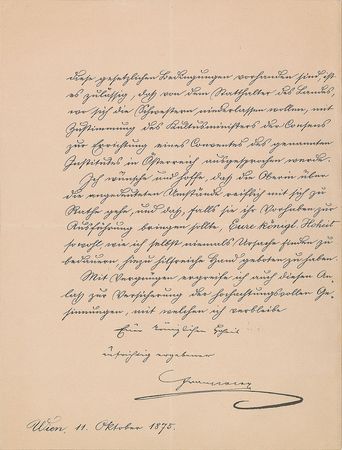 diese gesetzlichen Bedingungen vorhanden sind, ist
es zulässig, daß von dem Statthalter des Landes,
wo sich die Schwestern niederlassen wollen, mit
Zustimmung des Kultusministers der Consens
zur Errichtung eines Conventes des genannten
Institutes in Österreich ausgesprochen werde.
Ich wünsche und hoffe, daß die Oberin über
die angedeuteten Umstände reiflich mit sich zu
Rathe gehe, und daß, falls sie ihr Vorhaben zur
Ausführung bringen sollte, Eure königl. Hoheit
sowohl, wie ich selbst niemals Ursache finden zu
bedauern hiezu hilfreiche Hand geboten zu haben.
Mit Vergnügen ergreife ich auch diesen An-
laß zur Versicherung der hochachtungsvollen Ge-
sinnungen, mit welchen ich verbleibe
Eurer königlichen Hoheit
aufrichtig ergebener
Wien, 11. Oktober 1875.